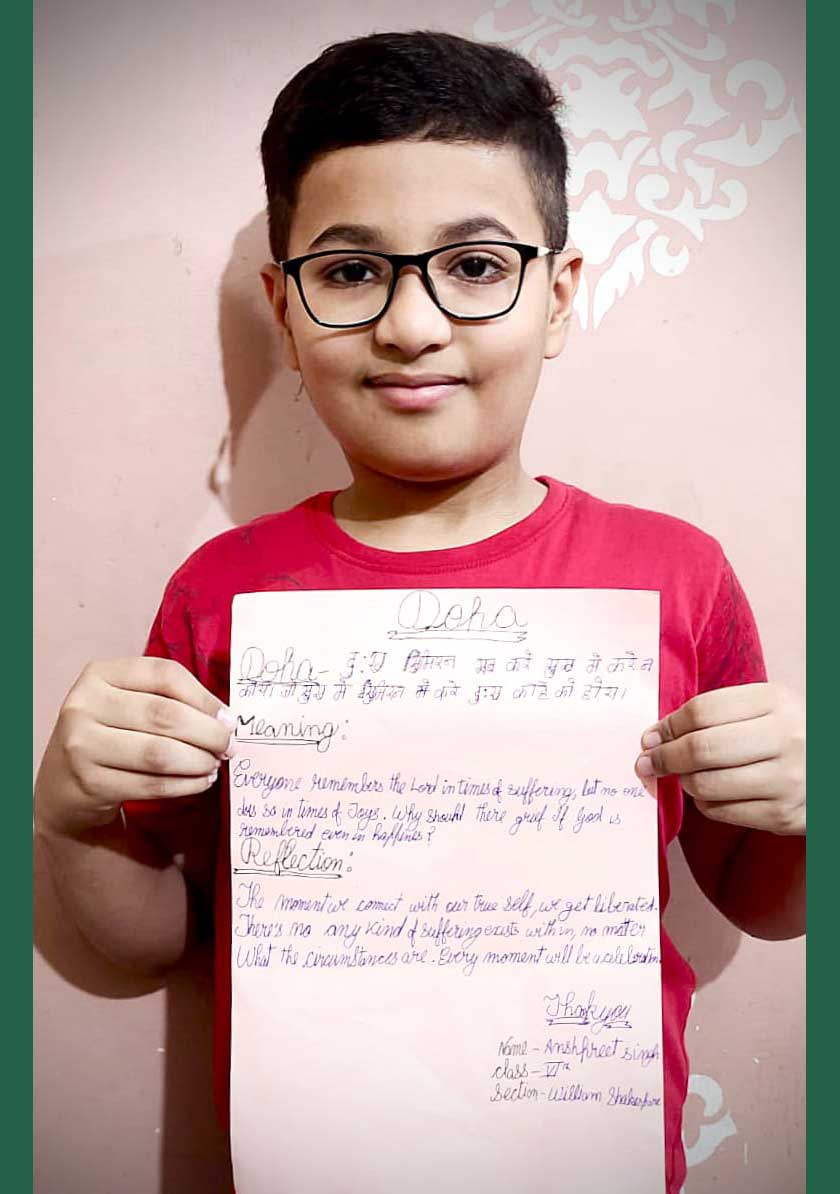 Doha
Doha- दुःख सुमिरन सब करे सुख मे करे न
कोय। जो सुख मे सुमिरन मे करे दुःख काहे को होय।
Meaning:
Everyone remembers the Lord in times of suffering, but no one
does so in times of Joys. Why should there greif If God is
remembered even in happines?
Reflection:
The moment we connect with our true self, we get liberated.
There's no any kind of suffering exists with in, no matter
What the circumstances are. Every moment will be a celebration.
Thank you
Name - Anshpreet singh
class - VIth
Section - William Shakespare